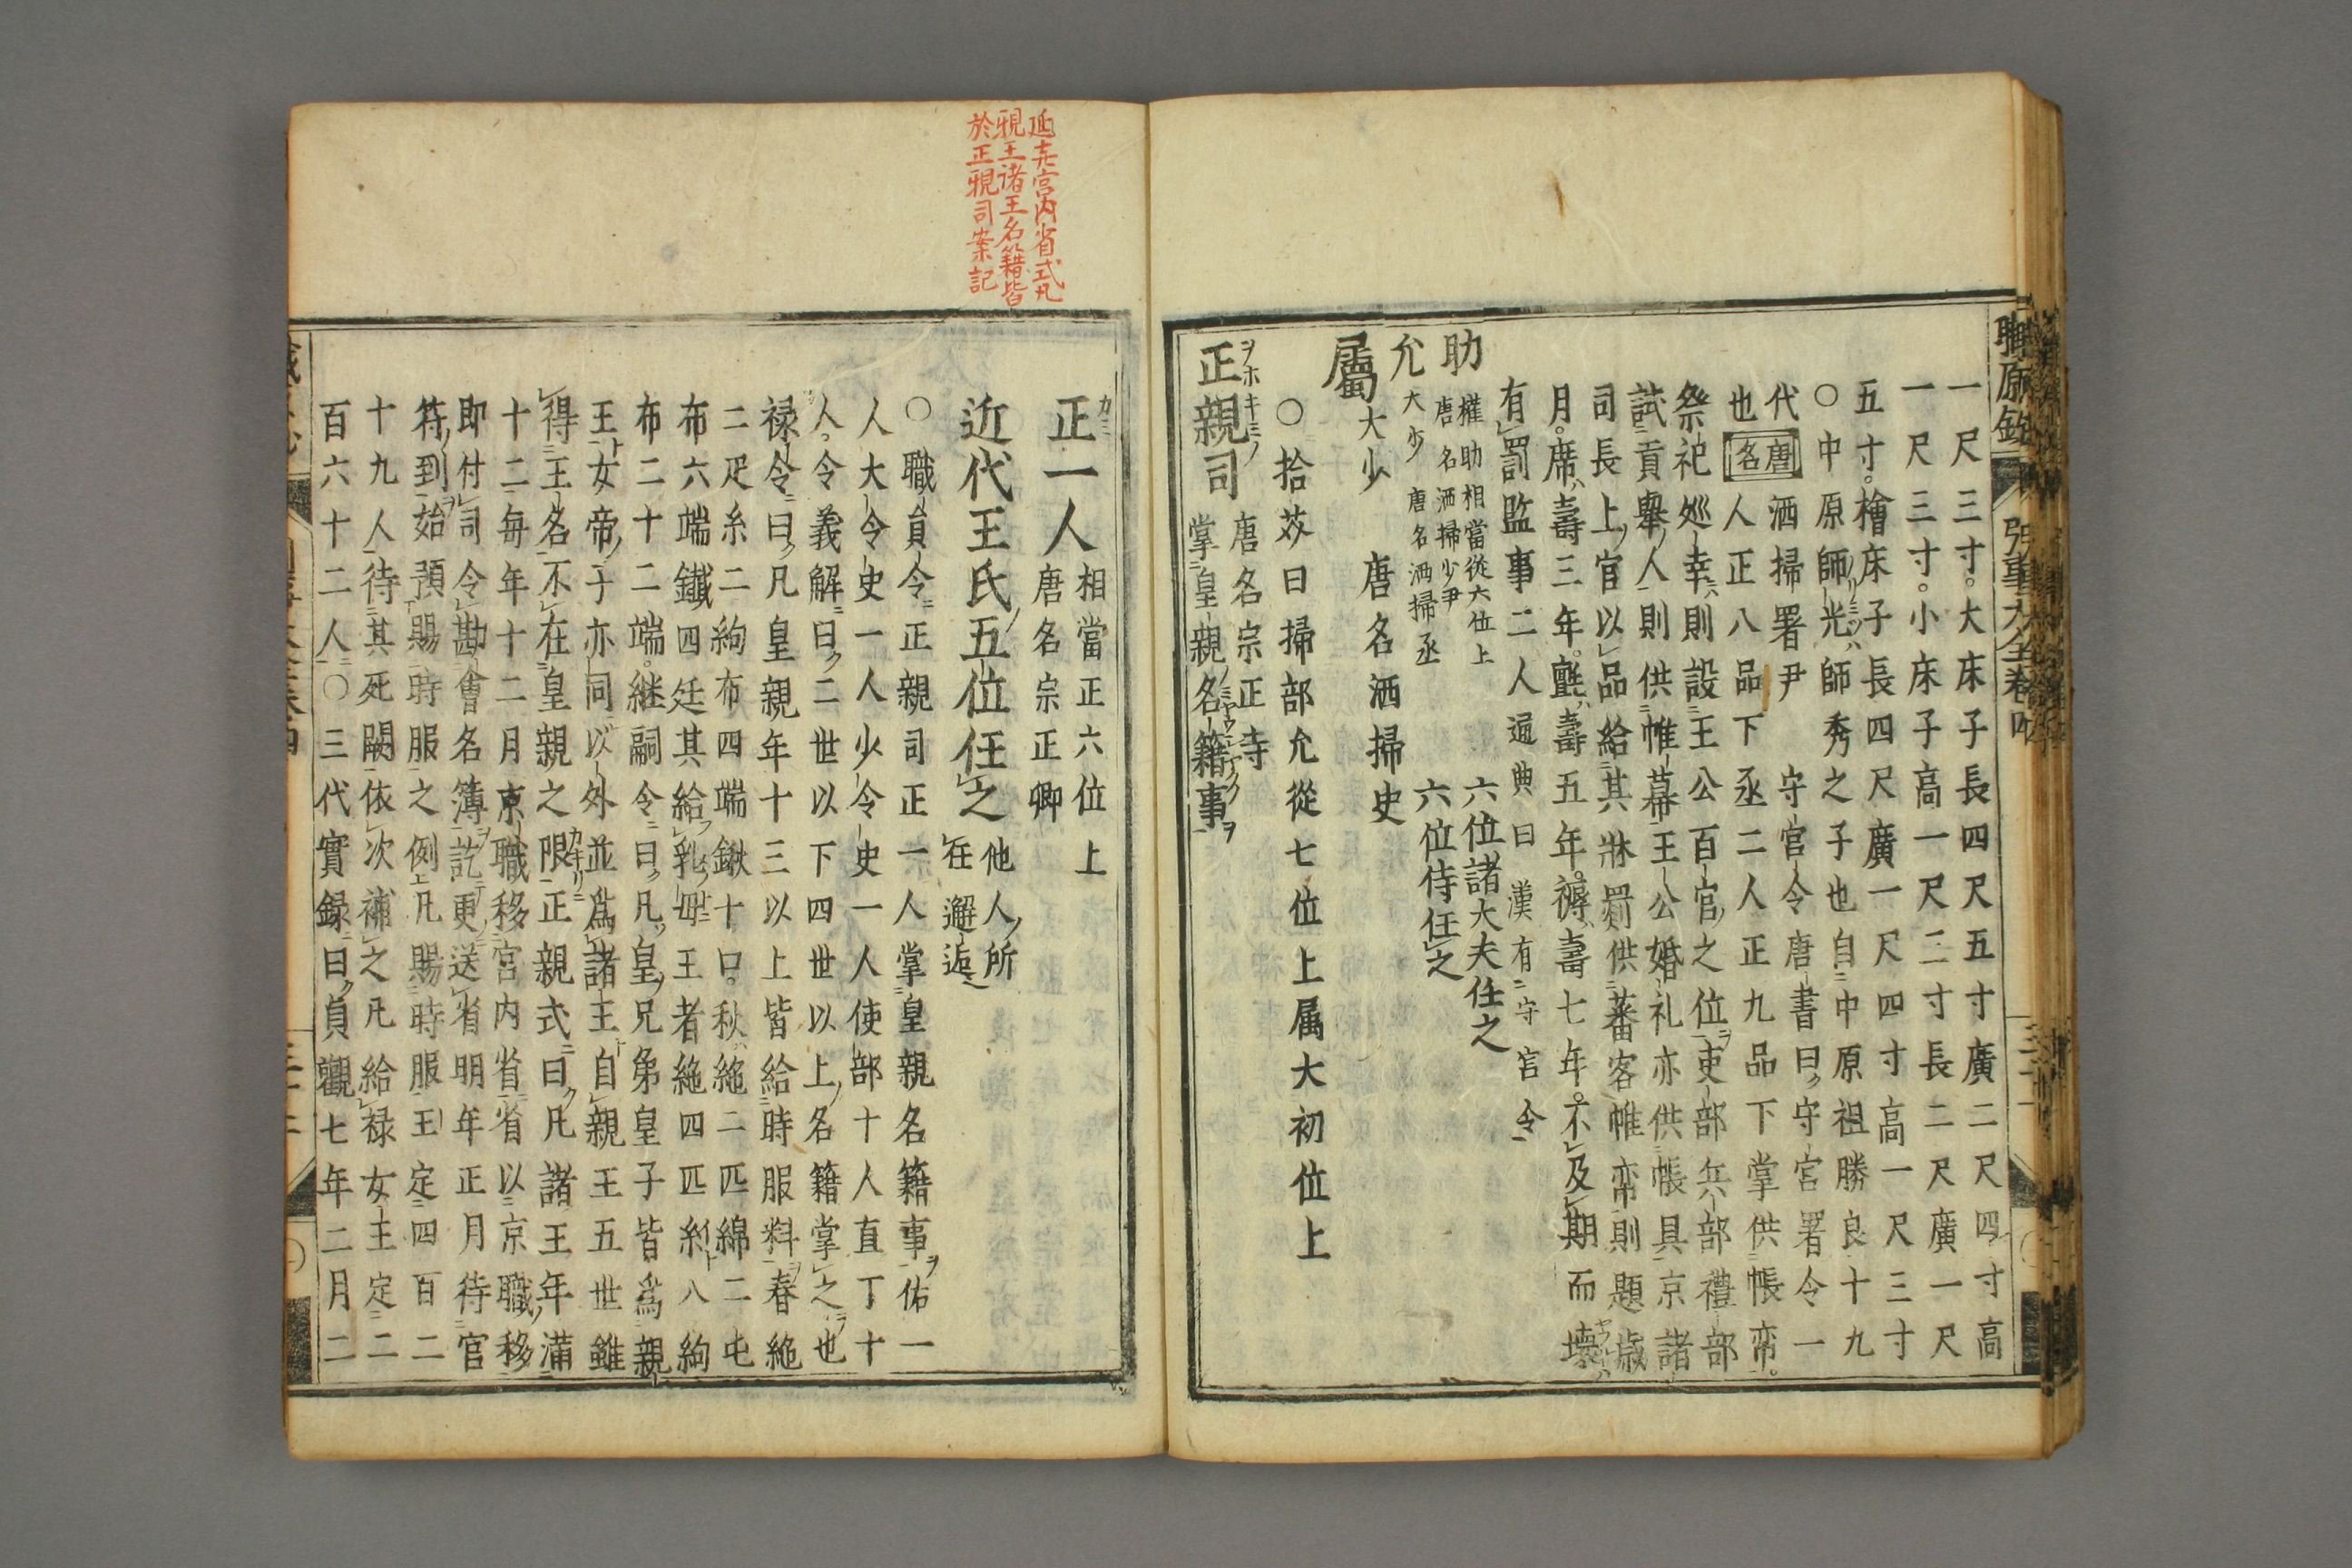 一尺三寸。大床子長四尺五寸廣二尺四寸高
一尺三寸。小床子高一尺二寸長二尺廣一尺
五寸。檜床子長四尺廣一尺四寸高一尺三寸
○中原師光師秀之子也自中原祖勝良十九
代唐名洒掃署尹 守宮令唐書曰守宮署令一
也人正八品下丞二人正九品下掌供帳帟。
祭祀巡幸則設王公百官之位吏部兵部禮部
試貢舉人則供帷幕王公婚礼亦供帳具京諸
司長上官以品給其牀罽供蕃客帷帟則題歲
月。席壽三年。氈壽五年。褥壽七年。不及期而壞
有罰監事二人通典曰漢有守宮令
助 權助相當從六位上 六位諸大夫任之
唐名洒掃少尹
允 大少 唐名洒掃丞 六位侍任之
屬 大少 唐名洒掃史
○拾芥曰掃部允從七位上属大初位上
正親司 唐名宗正寺
掌皇親名籍事
延㐂宮内省式凡
親王諸王名籍皆
於正親司案記
正一人 相當正六位上
唐名宗正卿
近代王氏五位任之 他人所
在邂逅
○職員令正親司正一人掌皇親名籍事佑一
人大令史一人少令史一人使部十人直丁十
人。令義解曰二世以下四世以上名籍掌之也
禄令曰凡皇親年十三以上皆給時服料春絁
二疋糸二絇布四端鍬十口。秋絁二匹綿二屯
布六端鐵四廷其給乳母王者絁四匹糸八絇
布二十二端。継嗣令曰凡皇兄弟皇子皆爲親
王女帝子亦同以外並爲諸王自親王五世雖
得王名不在皇親之限正親式曰凡諸王年滿
十二毎年十二月京職移宮内省省以京職移
即付司令勘會名簿訖更送省明年正月待官
符到始預賜時服之例凡賜時服王定四百二
十九人待其死闕依次補之凡給禄女王定二
百六十二人○三代實録曰貞觀七年二月二